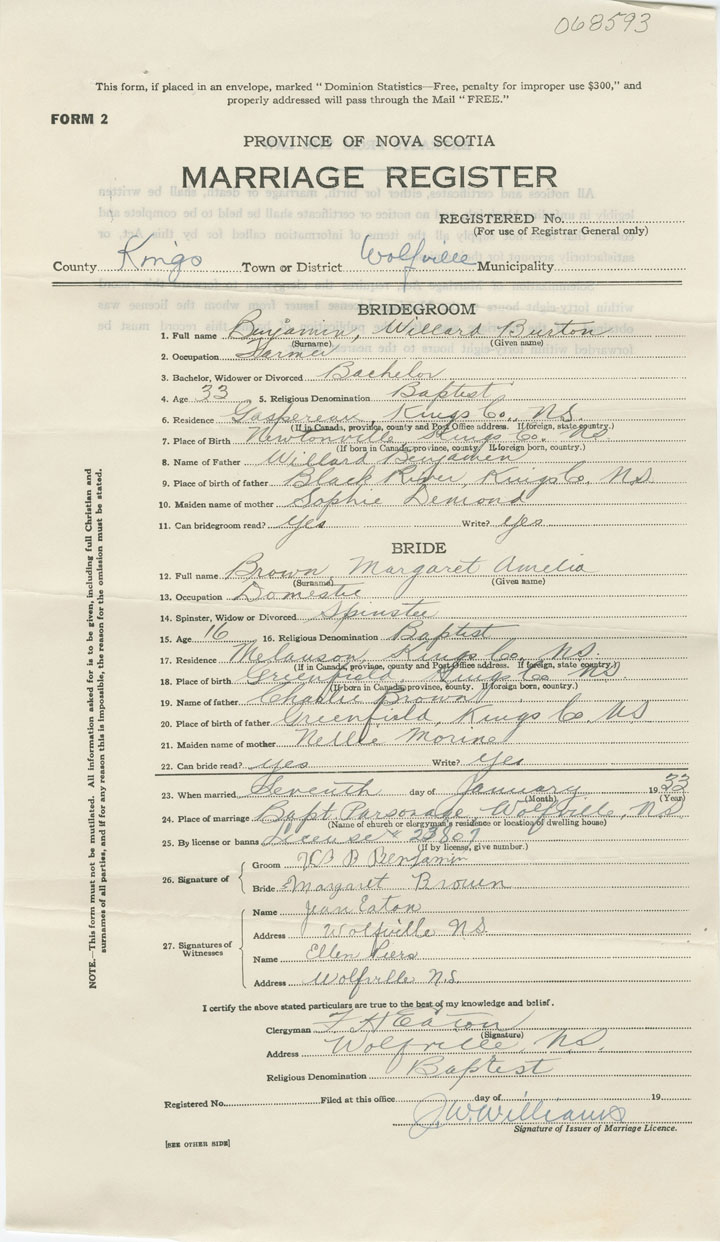 068593
This form, if placed in an envelope, marked "Dominion Statistics—Free, penalty for improper use $300," and
properly addressed will pass through the Mail "FREE."
FORM 2
PROVINCE OF NOVA SCOTIA
MARRIAGE REGISTER
REGISTERED No.
(For use of Registrar General only)
County Kings Town or District Wolfville Municipality
BRIDEGROOM
1. Full name Benjamin, Willard Burton
(Surname) (Given name)
2. Occupation Farmer
3. Bachelor, Widower or Divorced Bachelor
4. Age 33 5. Religious Denomination Baptist
6. Residence Gaspereau, Kings Co., N.S.
(If in Canada, province, county and Post Office address. If foreign, state country.)
7. Place of Birth Newtonville Kings Co. NS
(If born in Canada, province, county. If foreign born, country.)
8. Name of Father Willard Benjamin
9. Place of birth of father Black River, Kings Co. N.S.
10. Maiden name of mother Sophie Demond
11. Can bridegroom read? yes Write? yes
BRIDE
12. Full name Brown, Margaret Amelia
(Surname) (Given name)
13. Occupation Domestic
14. Spinster, Widow or Divorced Spinster
15. Age 16 16. Religious Denomination Baptist
17. Residence Melanson Kings Co., N.S.
(If in Canada, province, county and Post Office address. If foreign, state country.)
18. Place of birth Greenfield, Kings Co NS
(If born in Canada, province, county. If foreign born, country.)
19. Name of father Charlie Brown
20. Place of birth of father Greenfield, Kings Co. N.S
21. Maiden name of mother Nellie Morine
22. Can bride read? yes Write? yes
23. When married Seventh day of January 1933
(Month) (Year)
24. Place of marriage Bapt Parsonage Wolfville, N.S
(Name of church or clergyman's residence or location of dwelling house)
25. By license or banns License # 23807
(If by license, give number.)
26. Signature of
Groom W B Benjamin
Bride Margaret Brown
27. Signatures of Witnesses
Name Jean Eaton
Address Wolfville N.S.
Name Ellen Piers
Address Wolfville N.S.
I certify the above stated particulars are true to the best of my knowledge and belief.
Clergyman F H Eaton
(Signature)
Address Wolfville, N.S.
Religious Denomination Baptist
Registered No. Filed at this office day of 19
J.W. Williams
Signature of Issuer of Marriage Licence.
[SEE OTHER SIDE]
NOTE.—This form must not be mutilated. All information asked for is to be given, including full Christian and
surnames of all parties, and if for any reason this is impossible, the reason for the omission must be stated.